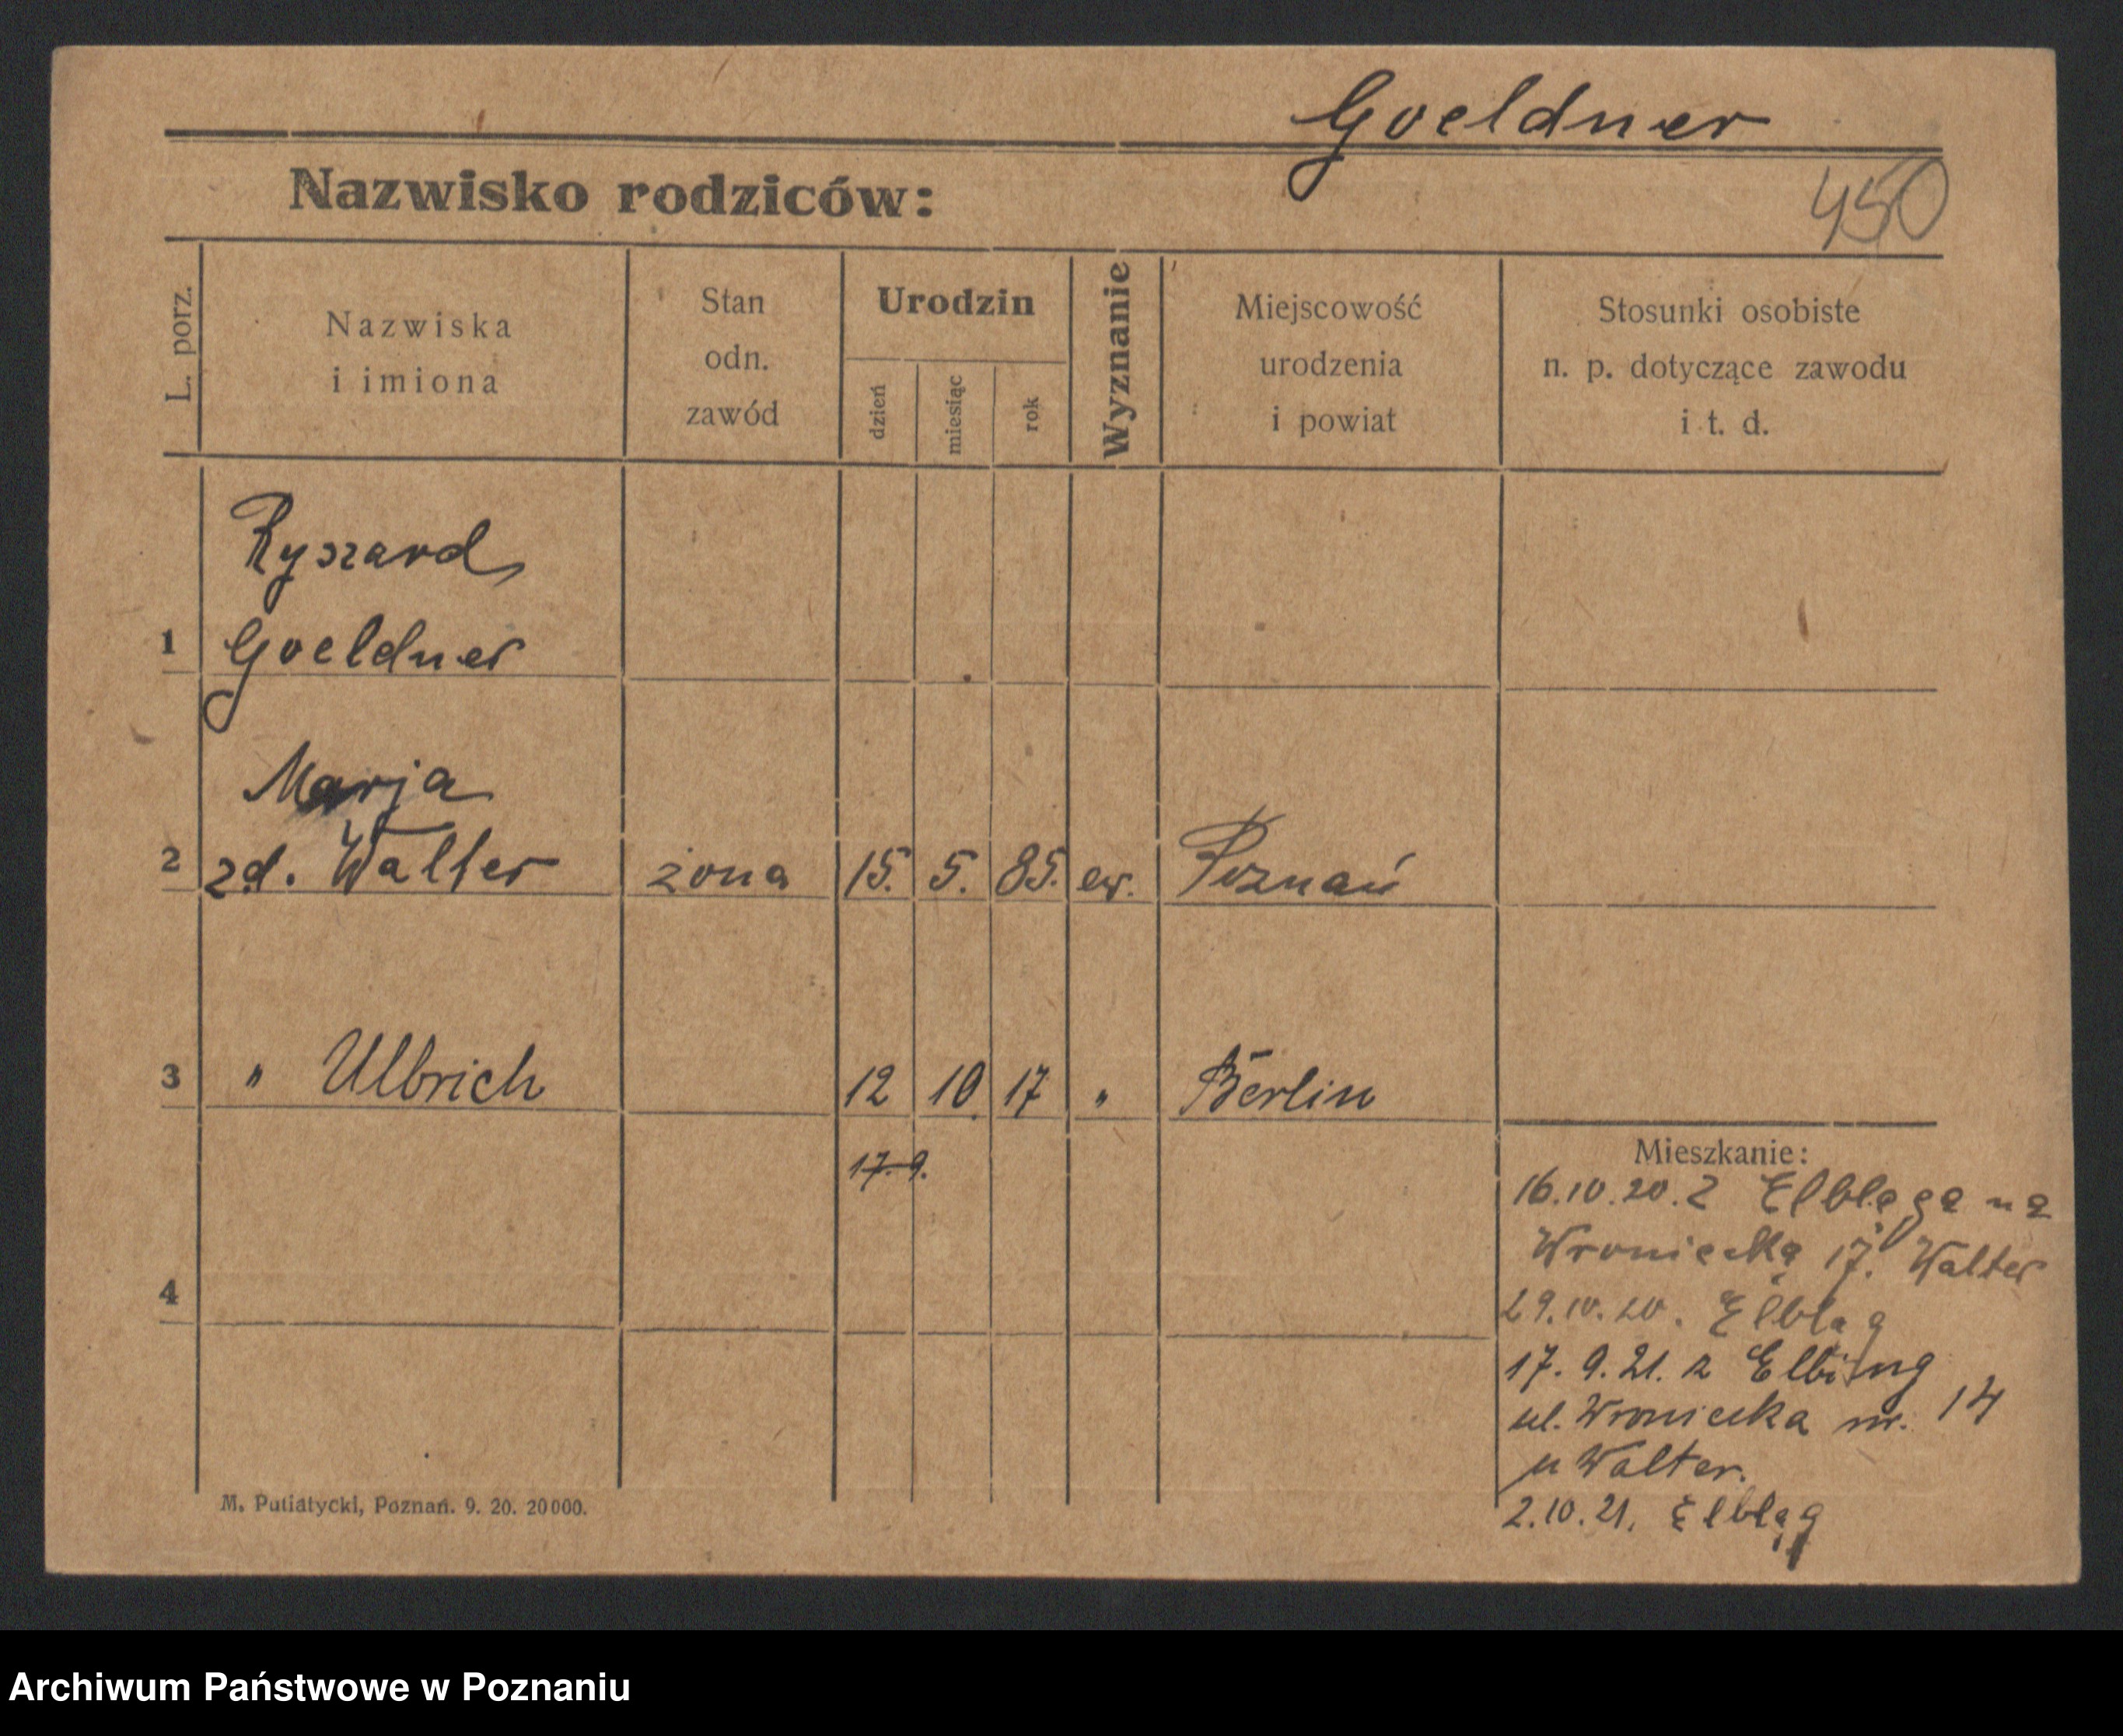 Goeldner
Nazwisko rodziców:
450
L. porz.
Nazwiska
i imiona
Stan
odn.
zawód
Urodzin
dzień
miesiąc
rok
Wyznanie
Miejscowość
urodzenia
i powiat
Stosunki osobiste
n. p. dotyczące zawodu
i t. d.
Ryszard
1 Goeldner
Marja
2 zd. Walter żona 15. 5. 85. ew. Poznań
3 " Ulbrich 12 10 17 " Berlin
17. 9.
4
Mieszkanie:
16.10.20. z Elbląga na
Wroniecką 17. Walter
29.10.20. Elbląg
17. 9. 21. z Elbing
ul. Wroniecka nr. 14
u Walter.
2.10.21. Elbląg
M. Putiatycki, Poznań. 9. 20. 20000.
Archiwum Państwowe w Poznaniu